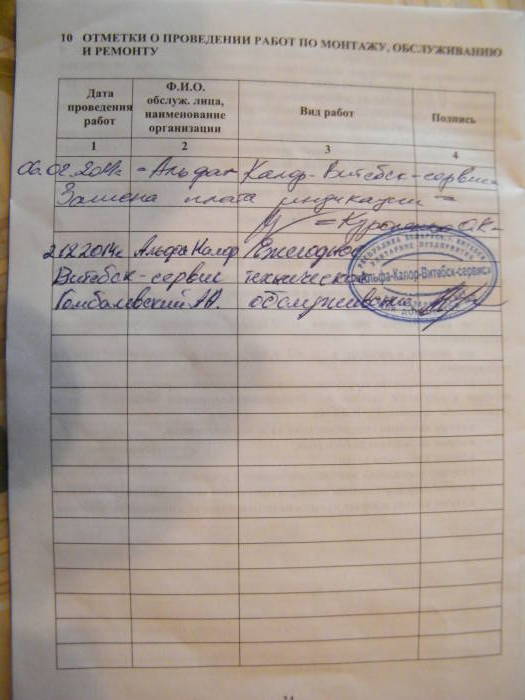 10 ОТМЕТКИ О ПРОВЕДЕНИИ РАБОТ ПО МОНТАЖУ, ОБСЛУЖИВАНИЮ
И РЕМОНТУ
Дата проведения работ
Ф.И.О. обслуж. лица, наименование организации
Вид работ
Подпись
1 2 3 4
Альфа Калор-Витебск-сервис
Замена плата индикации -
2.12.2014г. Альфа Калор Ежегодное
Витебск-сервис техническое
обслуживание
Альфа-Калор-Витебск-сервис